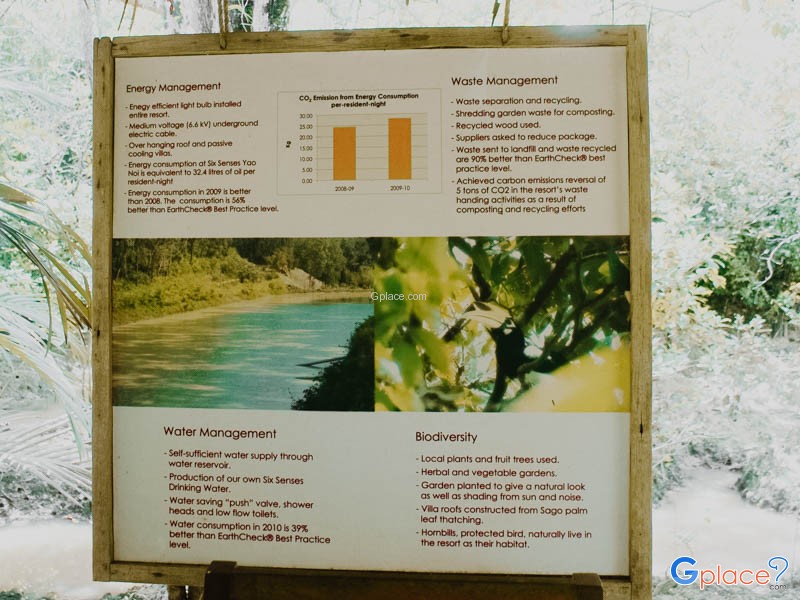 Energy Management
- Enegy efficient light bulb installed
entire resort.
- Medium voltage (6.6 kV) underground
electric cable.
- Over hanging roof and passive
cooling villas.
- Energy consumption at Six Senses Yao
Noi is equivalent to 32.4 litres of oil per
resident-night
- Energy consumption in 2009 is better
than 2008. The consumption is 56%
better than EarthCheck® Best Practice level.
CO2 Emission from Energy Consumption
per-resident-night
Kg
30.00
25.00
20.00
15.00
10.00
5.00
0.00
2008-09
2009-10
Waste Management
- Waste separation and recycling.
- Shredding garden waste for composting.
- Recycled wood used.
- Suppliers asked to reduce package.
- Waste sent to landfill and waste recycled
are 90% better than EarthCheck® best
practice level.
- Achieved carbon emissions reversal of
5 tons of CO2 in the resort's waste
handing activities as a result of
composting and recycling efforts
Gplace.com
Water Management
- Self-sufficient water supply through
water reservoir.
- Production of our own Six Senses
Drinking Water.
- Water saving "push" valve, shower
heads and low flow toilets.
- Water consumption in 2010 is 39%
better than EarthCheck® Best Practice
level.
Biodiversity
- Local plants and fruit trees used.
- Herbal and vegetable gardens.
- Garden planted to give a natural look
as well as shading from sun and noise.
- Villa roofs constructed from Sago palm
leaf thatching.
- Hornbills, protected bird, naturally live in
the resort as their habitat.
Gplace?.com